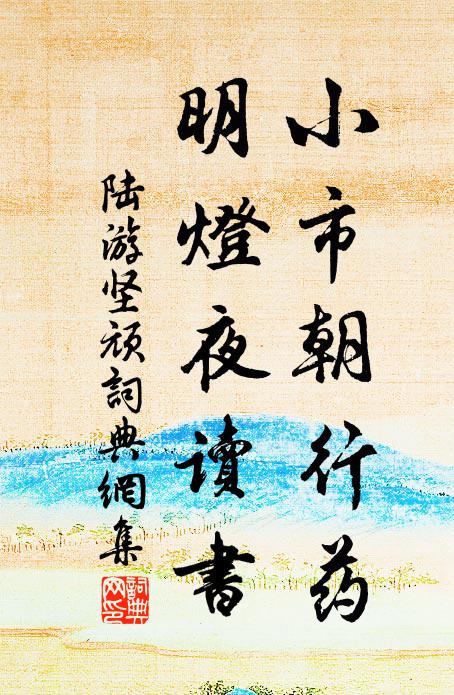 小市朝行药
明燈夜读書
陆游坚顽詞典網集
詞典